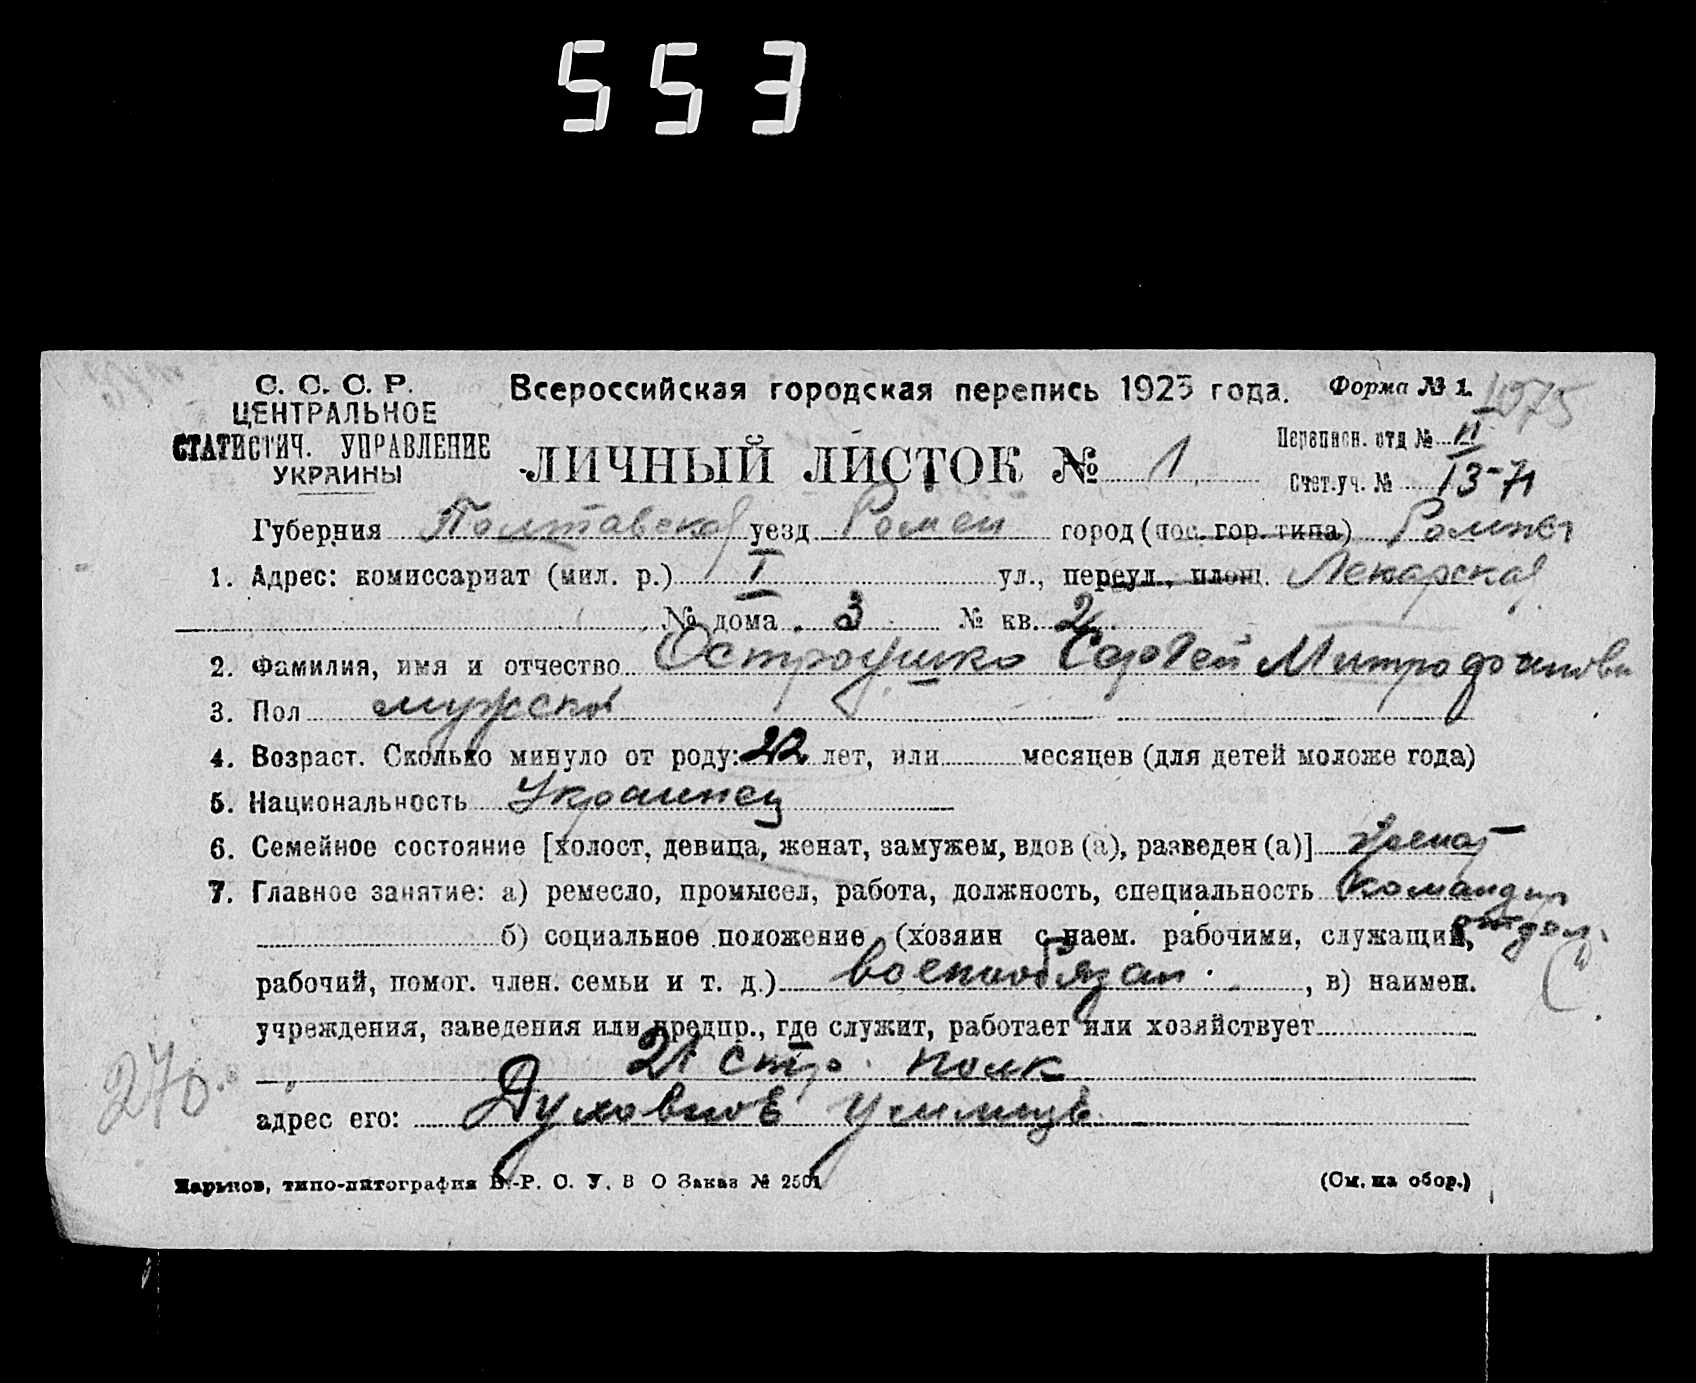 553
С. С. С. Р.
ЦЕНТРАЛЬНОЕ
СТАТИСТИЧ. УПРАВЛЕНИЕ
УКРАИНЫ
Всероссийская городская перепись 1923 года.
Форма № 1.
1075
ЛИЧНЫЙ ЛИСТОК № 1
Переписн. отд № II
Счет.уч. № 13-71
Губерния Полтавская уезд Ромен город (пос. гор. типа) Ромны
1. Адрес: комиссариат (мил. р.) I ул., переул., площ. Лекарская
№ дома 3 № кв. 2
2. Фамилия, имя и отчество Остроушко Сергей Митрофанови
3. Пол мужской
4. Возраст. Сколько минуло от роду: 22 лет, или месяцев (для детей моложе года)
5. Национальность Украинец
6. Семейное состояние [холост, девица, женат, замужем, вдов (а), разведен (а)] женат
7. Главное занятие: а) ремесло, промысел, работа, должность, специальность командир
отдел.
б) социальное положение (хозяин с наем. рабочими, служащий,
рабочий, помог. член. семьи и т. д.) военнообязан , в) наимен.
учреждения, заведения или предпр., где служит, работает или хозяйствует
21 стр. полк
270
адрес его: Духовное училище
Харьков, типо-литография В.-Р. С. У. В О Заказ № 2501
(См. на обор.)